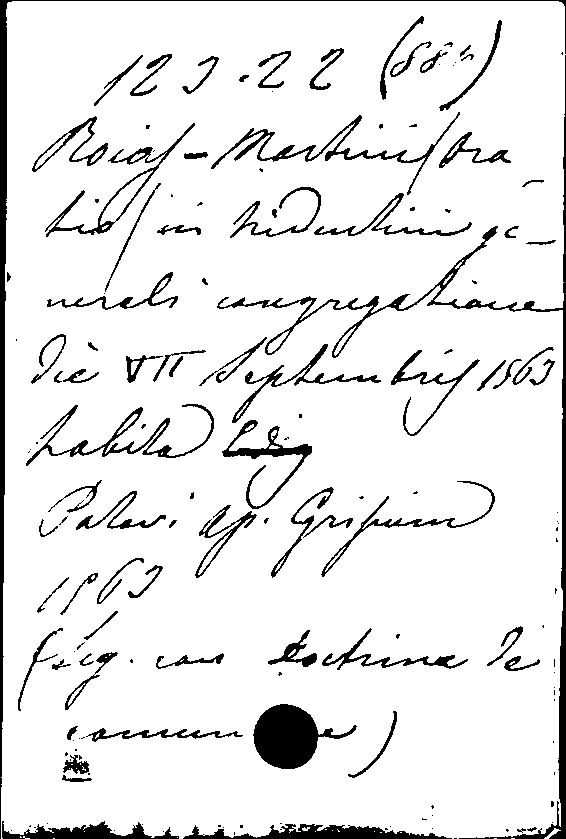 123.22 (885)
Roias - Martini (Ora-
tio) in tridentini ge-
nerali congregatione
die VII Septembris 1563
habita
Patavi ap. Grifium
1563
(Leg. con Doctrina de
comun e)